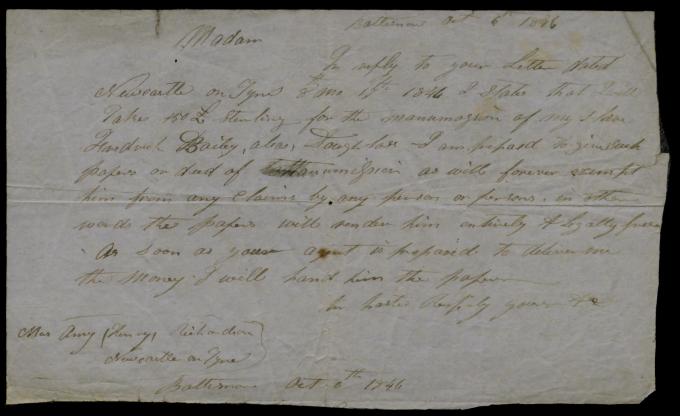 Baltimore Oct 6th 1846
Madam
In reply to your Letter dated
Newcastle on Tyne 8th Mo 17th 1846 I State that I will
Take 150£ Sterling for the manumission of my slave
Fredrick Bailey, alias, Douglass - I am prepared to give such
papers or deed of Manumission as will forever exempt
him from any Claims by any person or persons. in other
words the papers will render him entirely & legally free
As soon as your agent is prepared to deliver me
the money I will hand him the papers
In haste Respfly yours &c
Mrs (Henry) Richardson
Newcastle on Tyne
Baltimore Oct 6th 1846